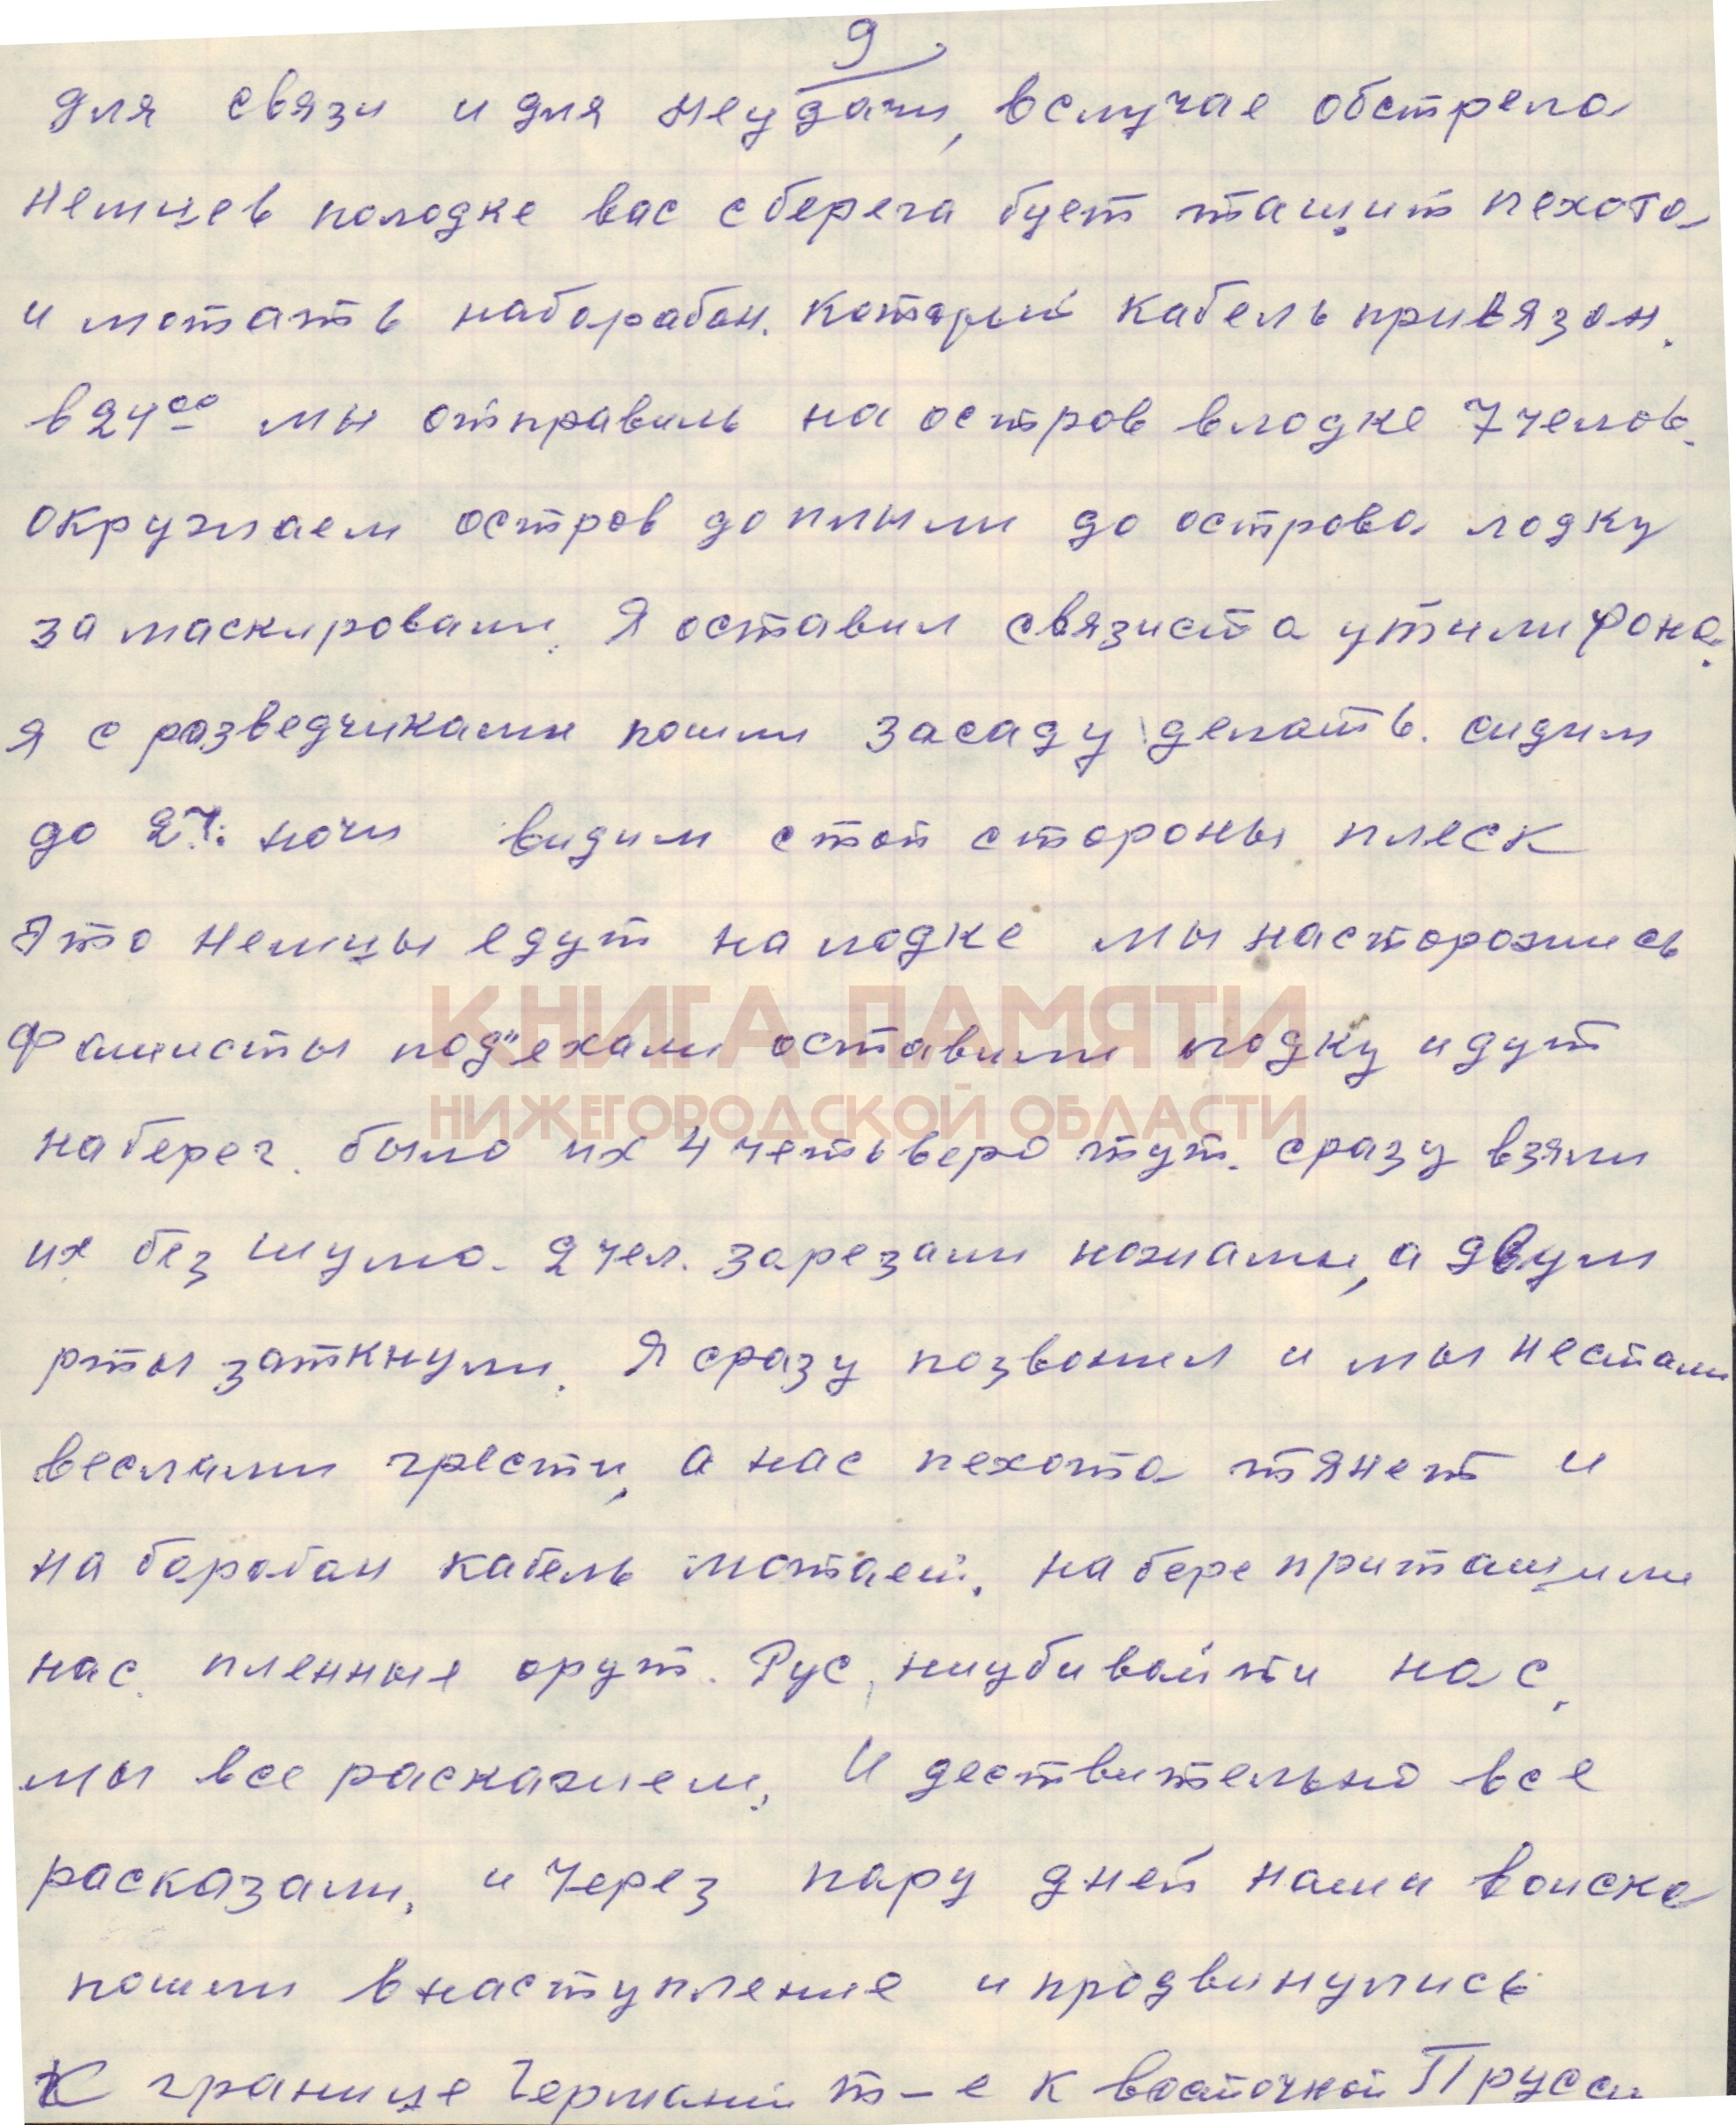 9
для связи и для неудачи, вслучае обстрела
немцев полодке вас сберега будет тащит пехота
и мотать наборабан. который кабель привязон.
в 24⁰⁰ мы отправиль на остров влодке 7 челов.
окружаем остров доплыли до острова лодку
за маскировали. Я оставил связиста утилифона.
я с розведчиками пошли засаду делать. сидим
до 2 ч. ночи видим с той стороны плеск
Это немцы едут на лодке мы насторожись
КНИГА ПАМЯТИ
фашисты под"ехали оставили лодку идут
НИЖЕГОРОДСКОЙ ОБЛАСТИ
на берег. было их 4 четьверо тут. сразу взяли
их без шума. 2 чел. зарезали ножами, а двум
рты заткнули. Я сразу позвонил и мы нестали
веслами грести, а нас пехота тянет и
на боробан кабель мотает. на бере притащили
нас. пленные орут. Рус, ниубивайти нас,
мы все раскажем. И дествительно все
расказали, и Через пару дней наши воиска
пошли внаступление и продвинулись
К границе Германи т-е к восточной Прусси